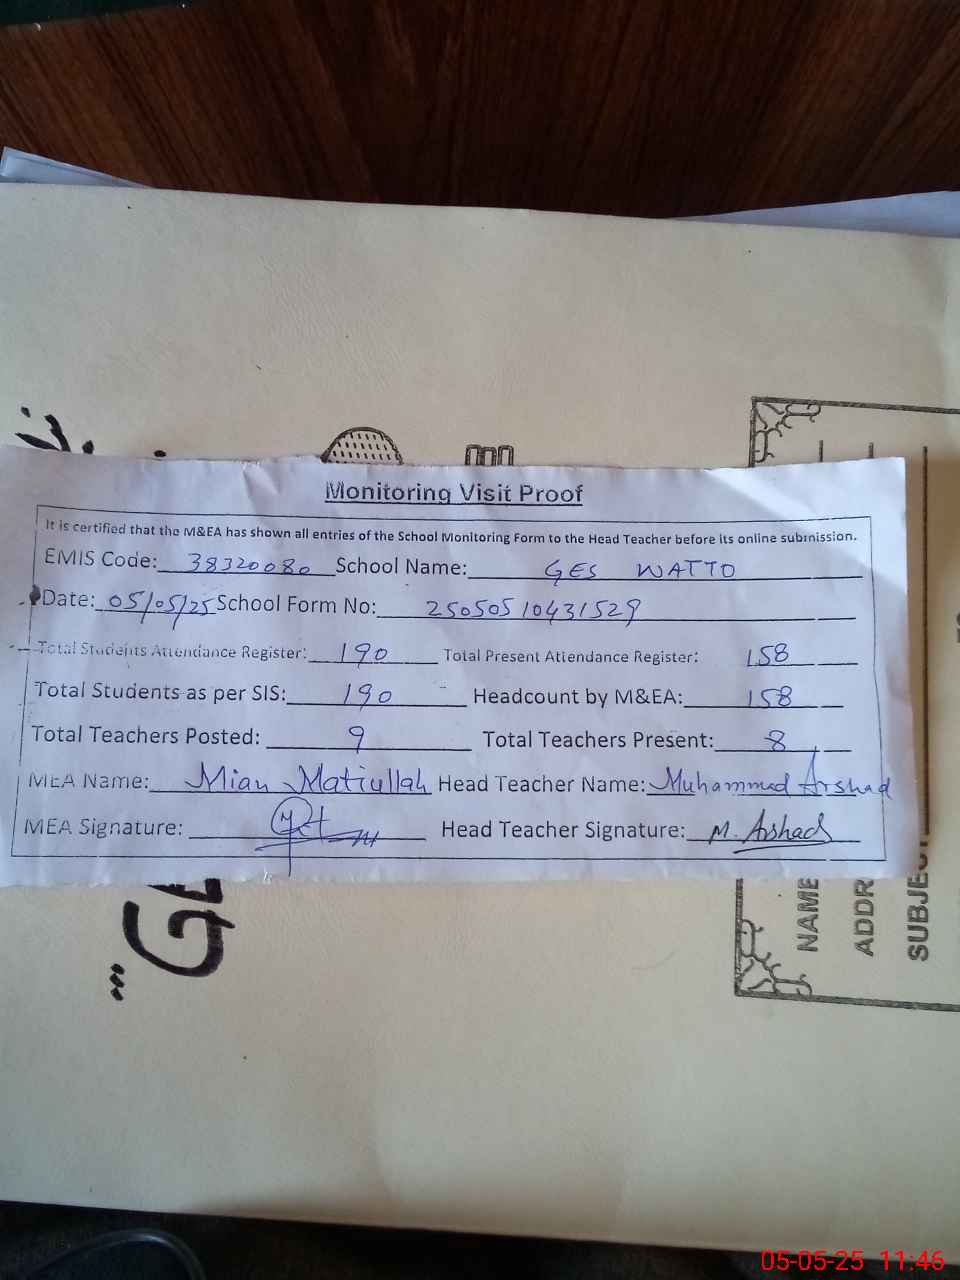 Monitoring Visit Proof
It is certified that the M&EA has shown all entries of the School Monitoring Form to the Head Teacher before its online submission.
EMIS Code: 38320080 School Name: GES WATTO
Date: 05/05/25 School Form No: 25050510431529
Total Students Attendance Register: 190 Total Present Attendance Register: 158
Total Students as per SIS: 190 Headcount by M&EA: 158
Total Teachers Posted: 9 Total Teachers Present: 8
MEA Name: Mian Matiullah Head Teacher Name: Muhammad Arshad
MEA Signature: Head Teacher Signature: M. Arshad
NAME
ADDR
SUBJECT
05-05-25 11:46